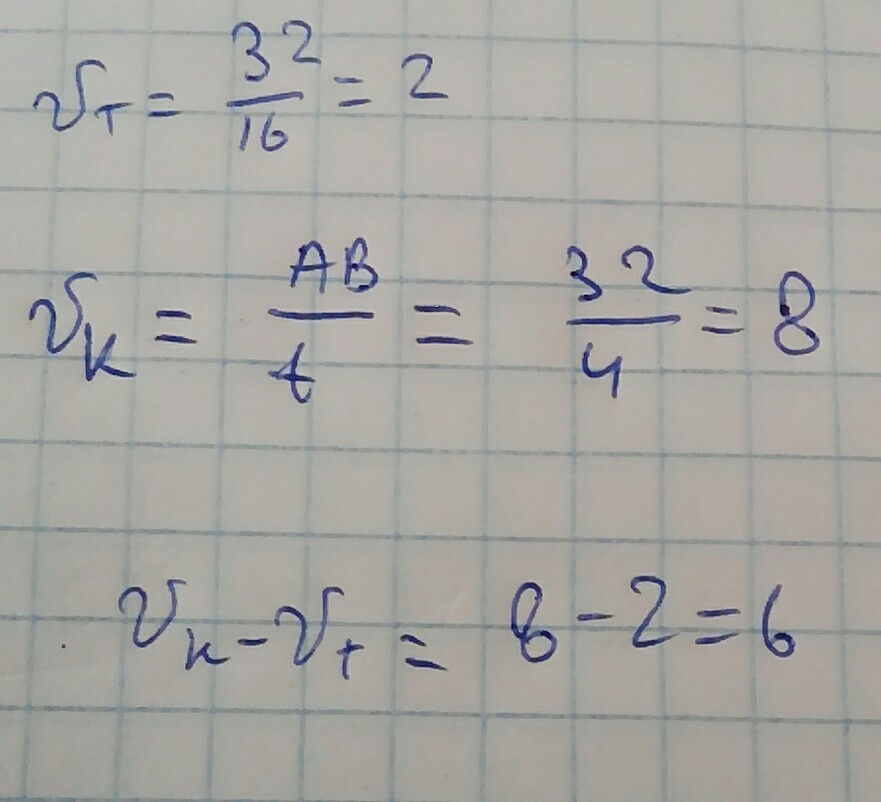 v_т = 32/16 = 2
v_к = AB/t = 32/4 = 8
v_к - v_т = 8 - 2 = 6